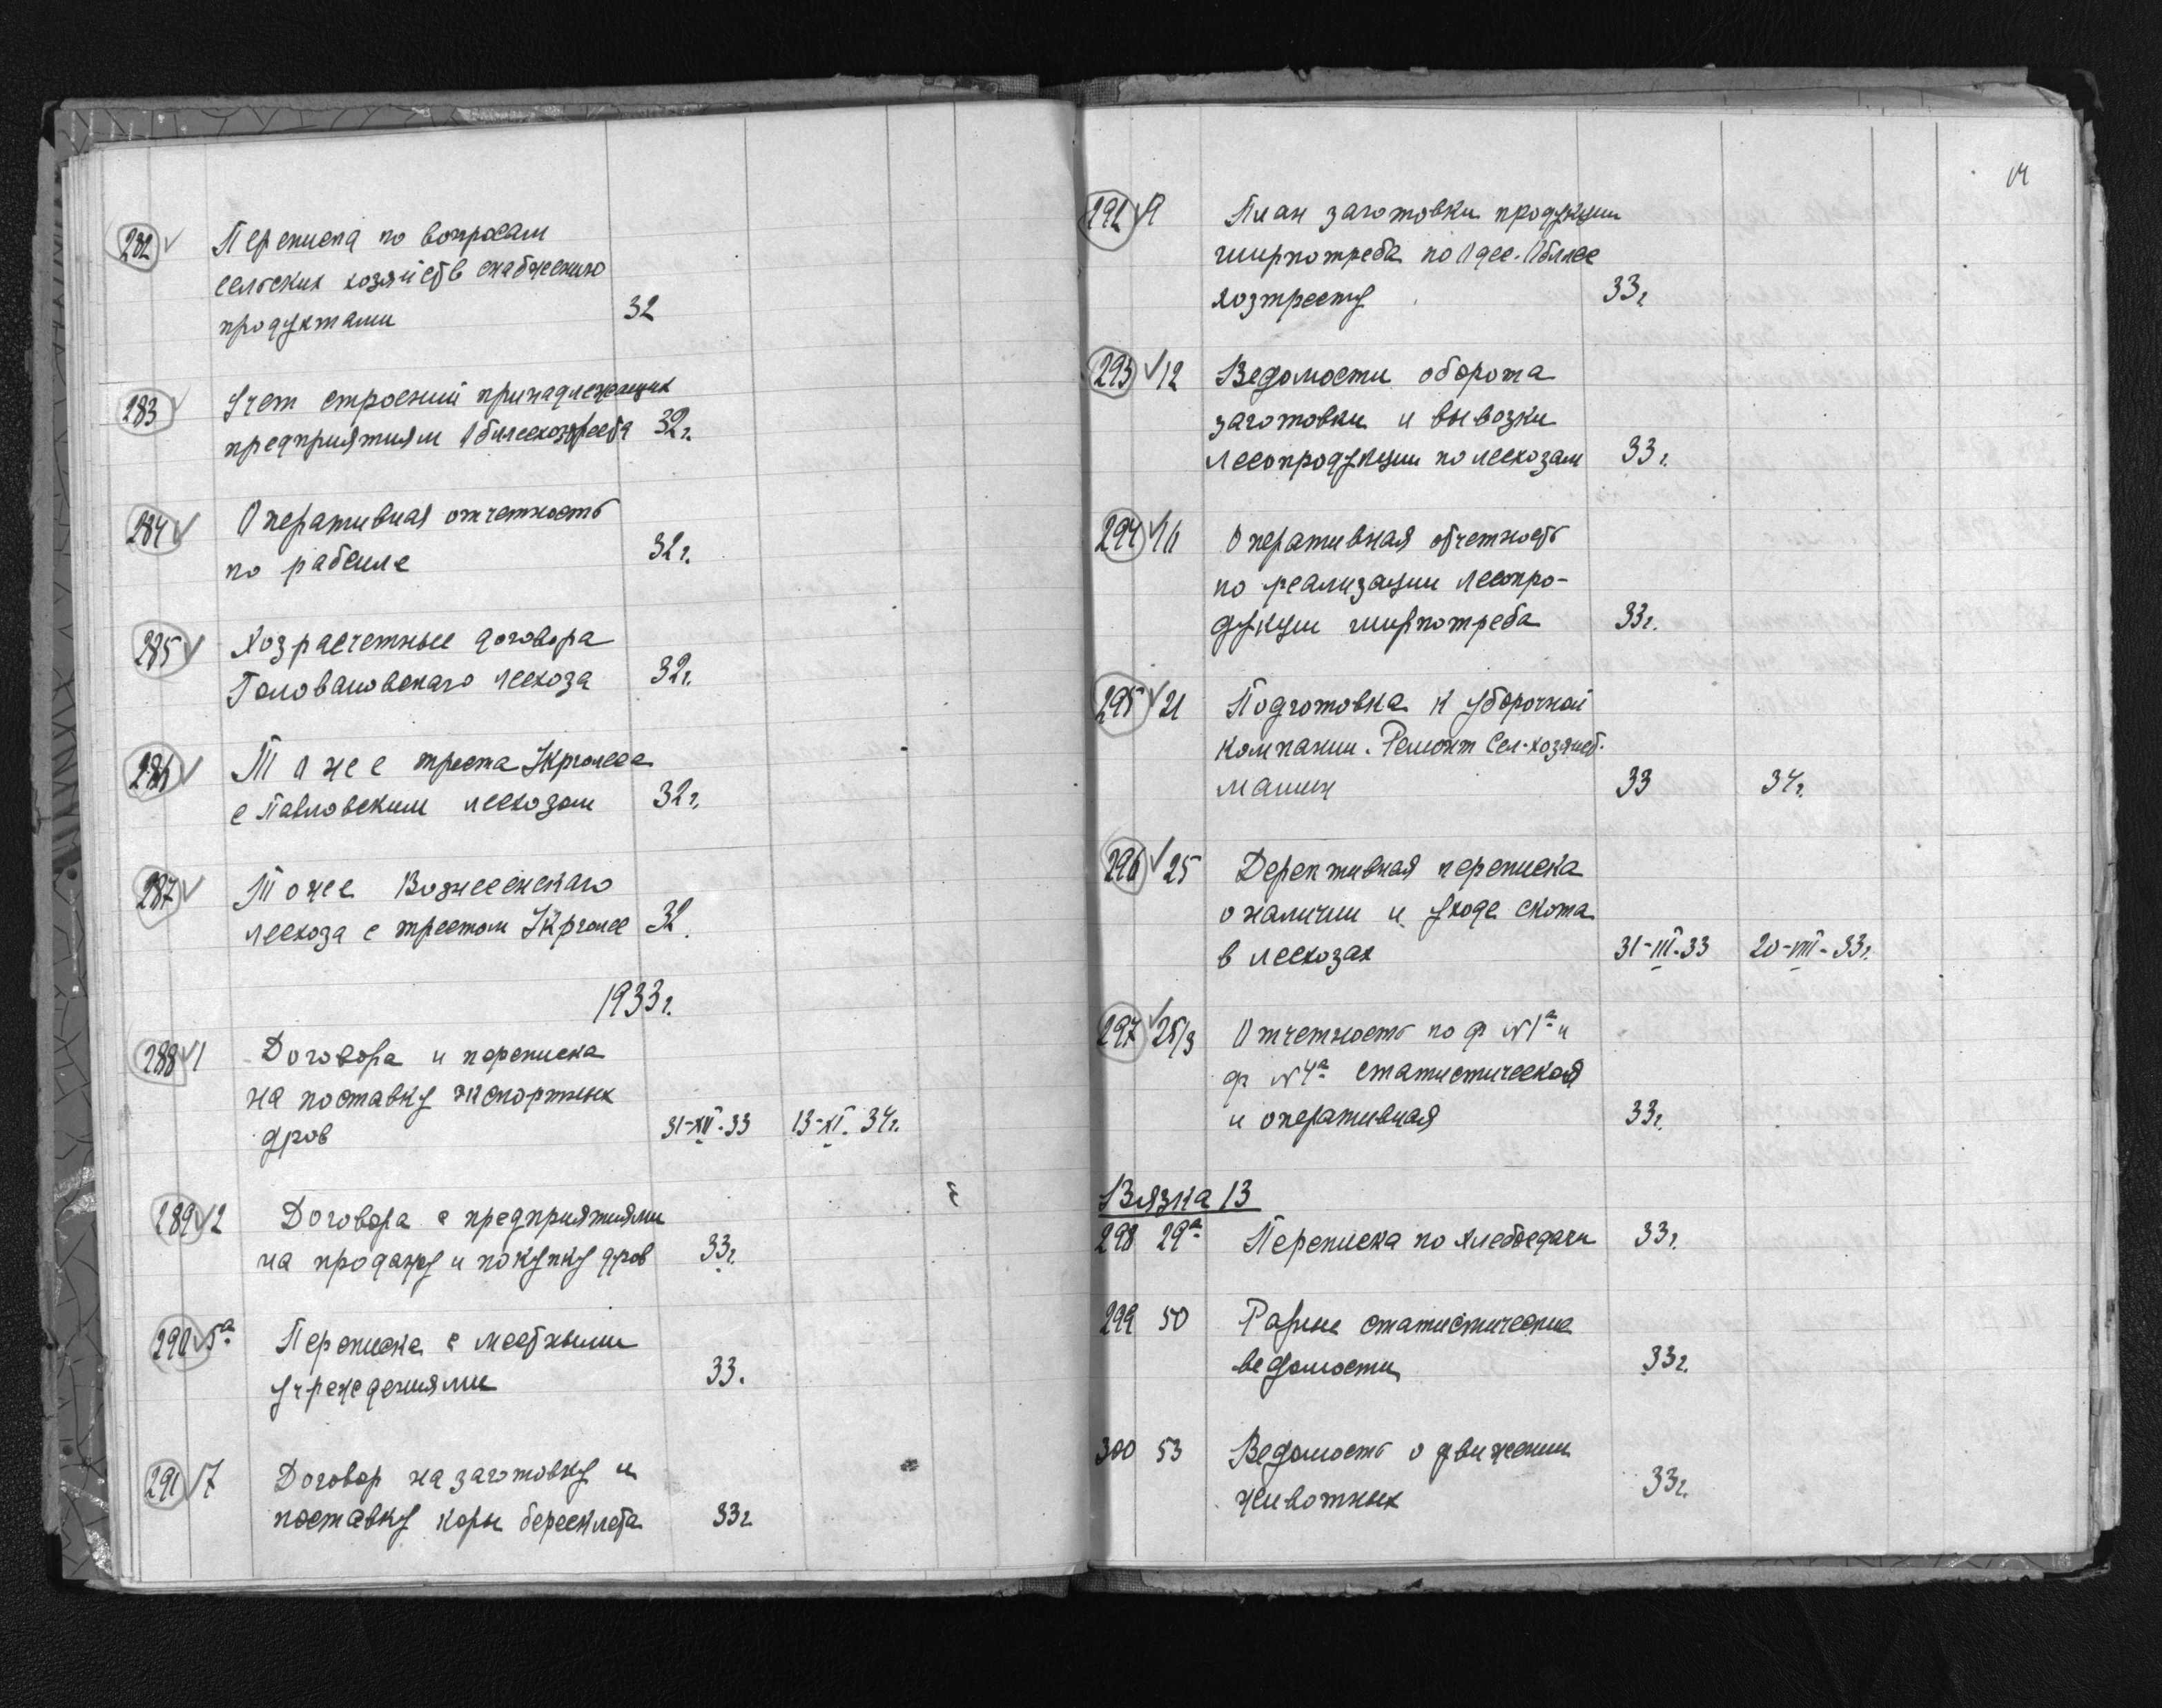 282 ✓ Переписка по вопросам
сельских хозяйств снабжению
продуктами 32
283 ✓ Учет строений принадлежащих
предприятиям Облесхозтреста 32г.
284 ✓ Оперативная отчетность
по рабсиле 32г.
285 ✓ Хозрасчетные договора
Головановского лесхоза 32г.
286 ✓ Тоже треста Укрголеса
с Павловским лесхозом 32г.
287 ✓ Тоже Вознесенскаго
лесхоза с трестом Укрголес 32.
1933г.
288 ✓ 1 Договора и переписка
на поставку экспортных
дров 31-XII-33 13-XI-34г.
289 ✓ 2 Договора с предприятиями
на продажу и покупку дров 33г.
290 ✓ 5а Переписка с местными
учреждениями 33.
291 ✓ 7 Договор на заготовку и
поставку коры бересклета 33г
14
292 ✓ 9 План заготовки продукции
ширпотреба по Одес. Обллес
хозтресту 33г
293 ✓ 12 Ведомости оборота
заготовки и вывозки
лесопродукции по лесхозам 33г.
294 ✓ 16 Оперативная отчетность
по реализации лесопро-
дукции ширпотреба 33г.
295 ✓ 21 Подготовка к уборочной
компании. Ремонт Сел-хозяйст.
машин 33 34г.
296 ✓ 25 Дерективная переписка
о наличии и уходе скота
в лесхозах 31-III-33 20-VIII-33г.
297 ✓ 25/3 Отчетность по ф №1а и
ф №4а статистическая
и оперативная 33г.
Вязка 13
298 29а Переписка по хлебосдачи 33г.
299 50 Разные статистические
ведомости 33г.
300 53 Ведомость о движении
животных 33г.